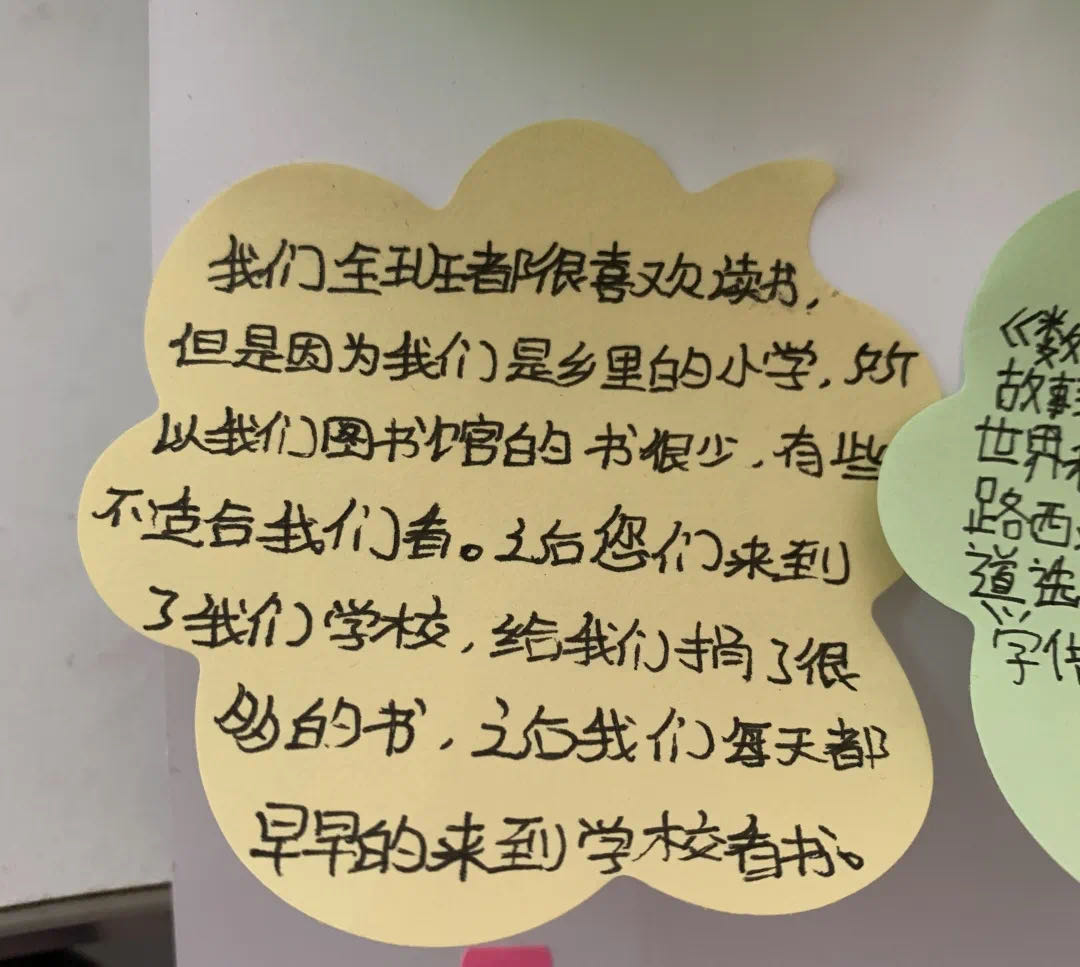 我们全班都很喜欢读书，
但是因为我们是乡里的小学，所
以我们图书馆的书很少，有些
不适合我们看。之后您们来到
了我们学校，给我们捐了很
多的书，之后我们每天都
早早的来到学校看书。
《数
故事
世界
路西
道选
字传